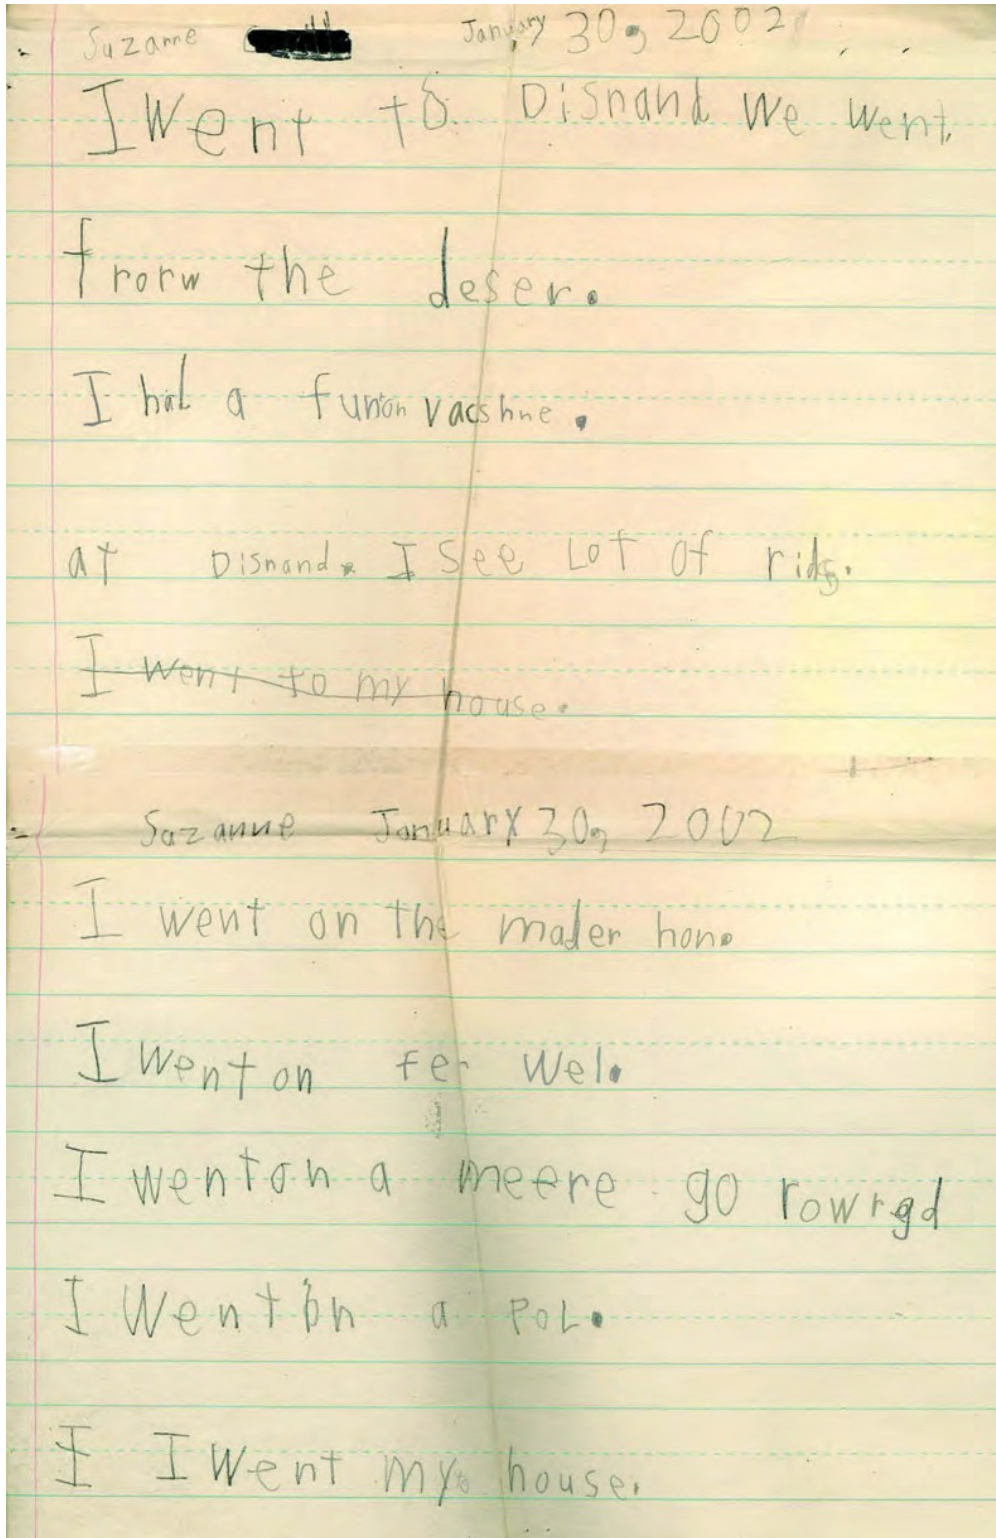 Suzanne January 30, 2002
I Went to Disnand We went
frorw the deser.
I had a funon vacshne.
at Disnand. I see LoT of rids.
I went to my house.
Suzanne January 30, 2002
I went on the mader hon.
I went on fer Wel.
I went on a meere go rowrgd
I Went on a POL.
I I Went my to house.